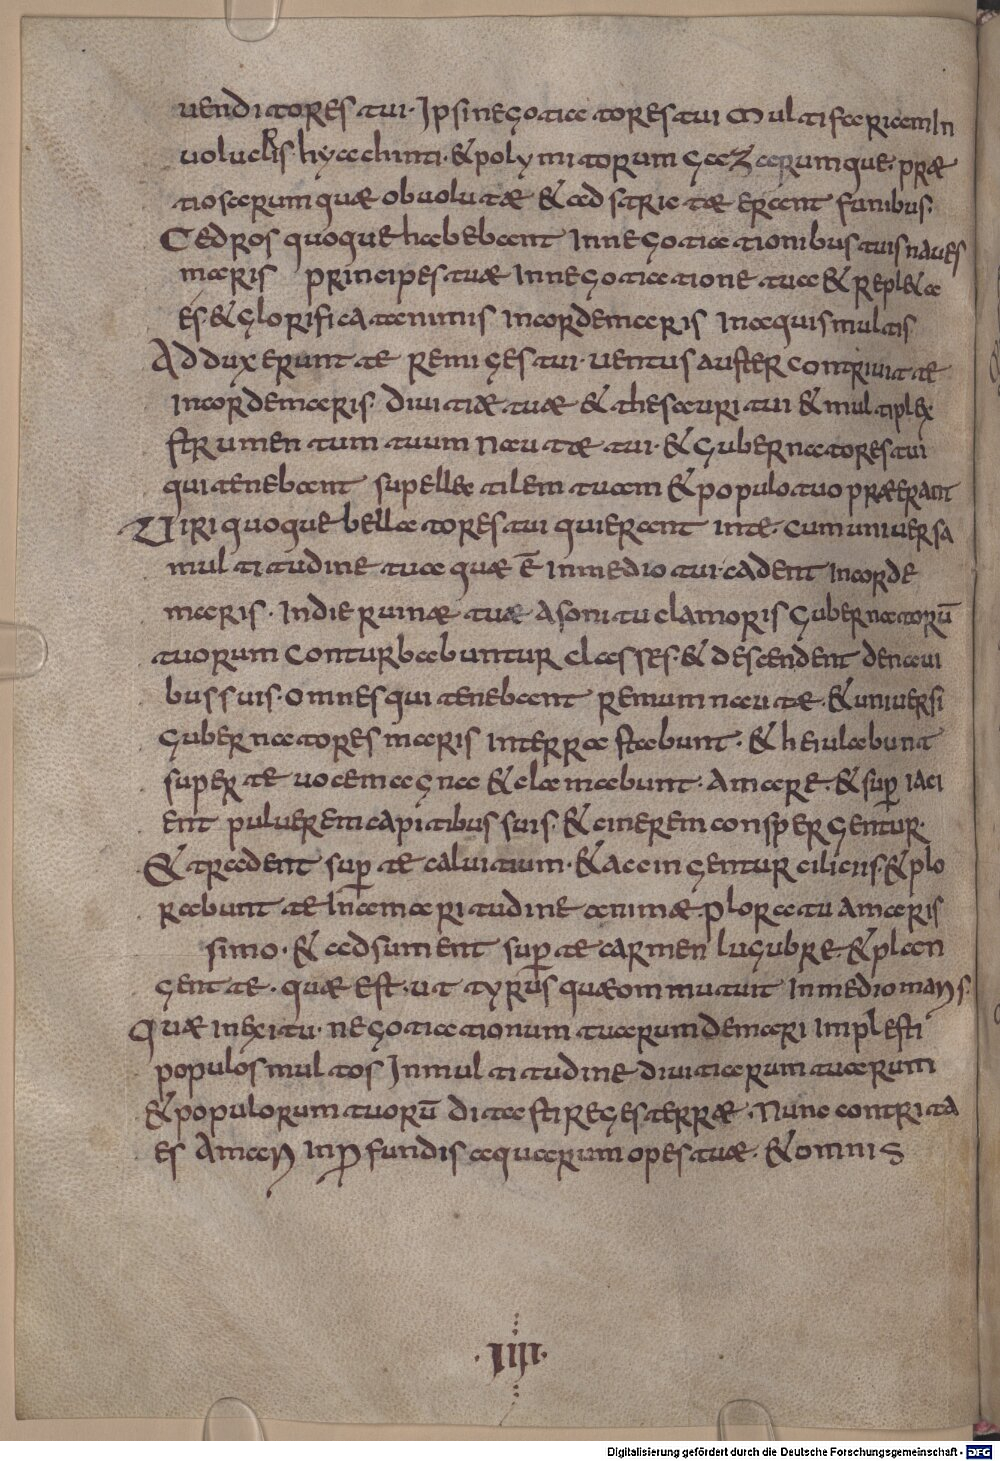 uenditores tui· Ipsi negotiatores tui multifariam In
uolucris· hyachinti· & polymitorum gazarumque· præ
tiosarum quæ obuolutæ & adstrictæ erant funibus·
Cedros quoque habebant In negotiationibus tuis naues
maris principes tuæ In negotiatione tua & repl&a
es· & glorificata nimis In corde maris In aquis multis
Adduxerunt te remiges tui· uentus auster contriuit te
In corde maris· diuitiæ tuæ & thesauri tui & multiplex
strumentum tuum nautæ tui· & gubernatores tui
qui tenebant supellectilem tuam & populo tuo præerant
Uiri quoque bellatores tui qui erant in te· cum uniuersa
multitudine tua quæ ē In medio tui· cadent In corde
maris· In die ruinæ tuæ a sonitu clamoris gubernatorū
tuorum conturbabuntur classes· & descendent de naui
bus suis· omnes qui tenebant remum nautæ· & uniuersi
gubernatores maris In terra stabunt· & heiulabunt
super te uoce magna & clamabunt· amare· & sup iaci
ent puluerem capitibus suis· & cinere conspergentur·
& tradent sup te caluitium· & accingentur ciliciis· & plo
rabunt te In amaritudine animæ· ploratu amaris
simo· & adsument sup te carmen lugubre· & plan
gent te· quæ est· ut tyrus quæ ommutuit In medio maris·
Quæ In exitu· negotiationum tuarum de mari Implesti
populos multos In multitudine diuitiarum tuarum
& populorum tuorū ditasti reges terræ· Nunc contrita
es a mari In pfundis aquarum opes tuæ· & omnis
·IIII·
Digitalisierung gefördert durch die Deutsche Forschungsgemeinschaft - DFG